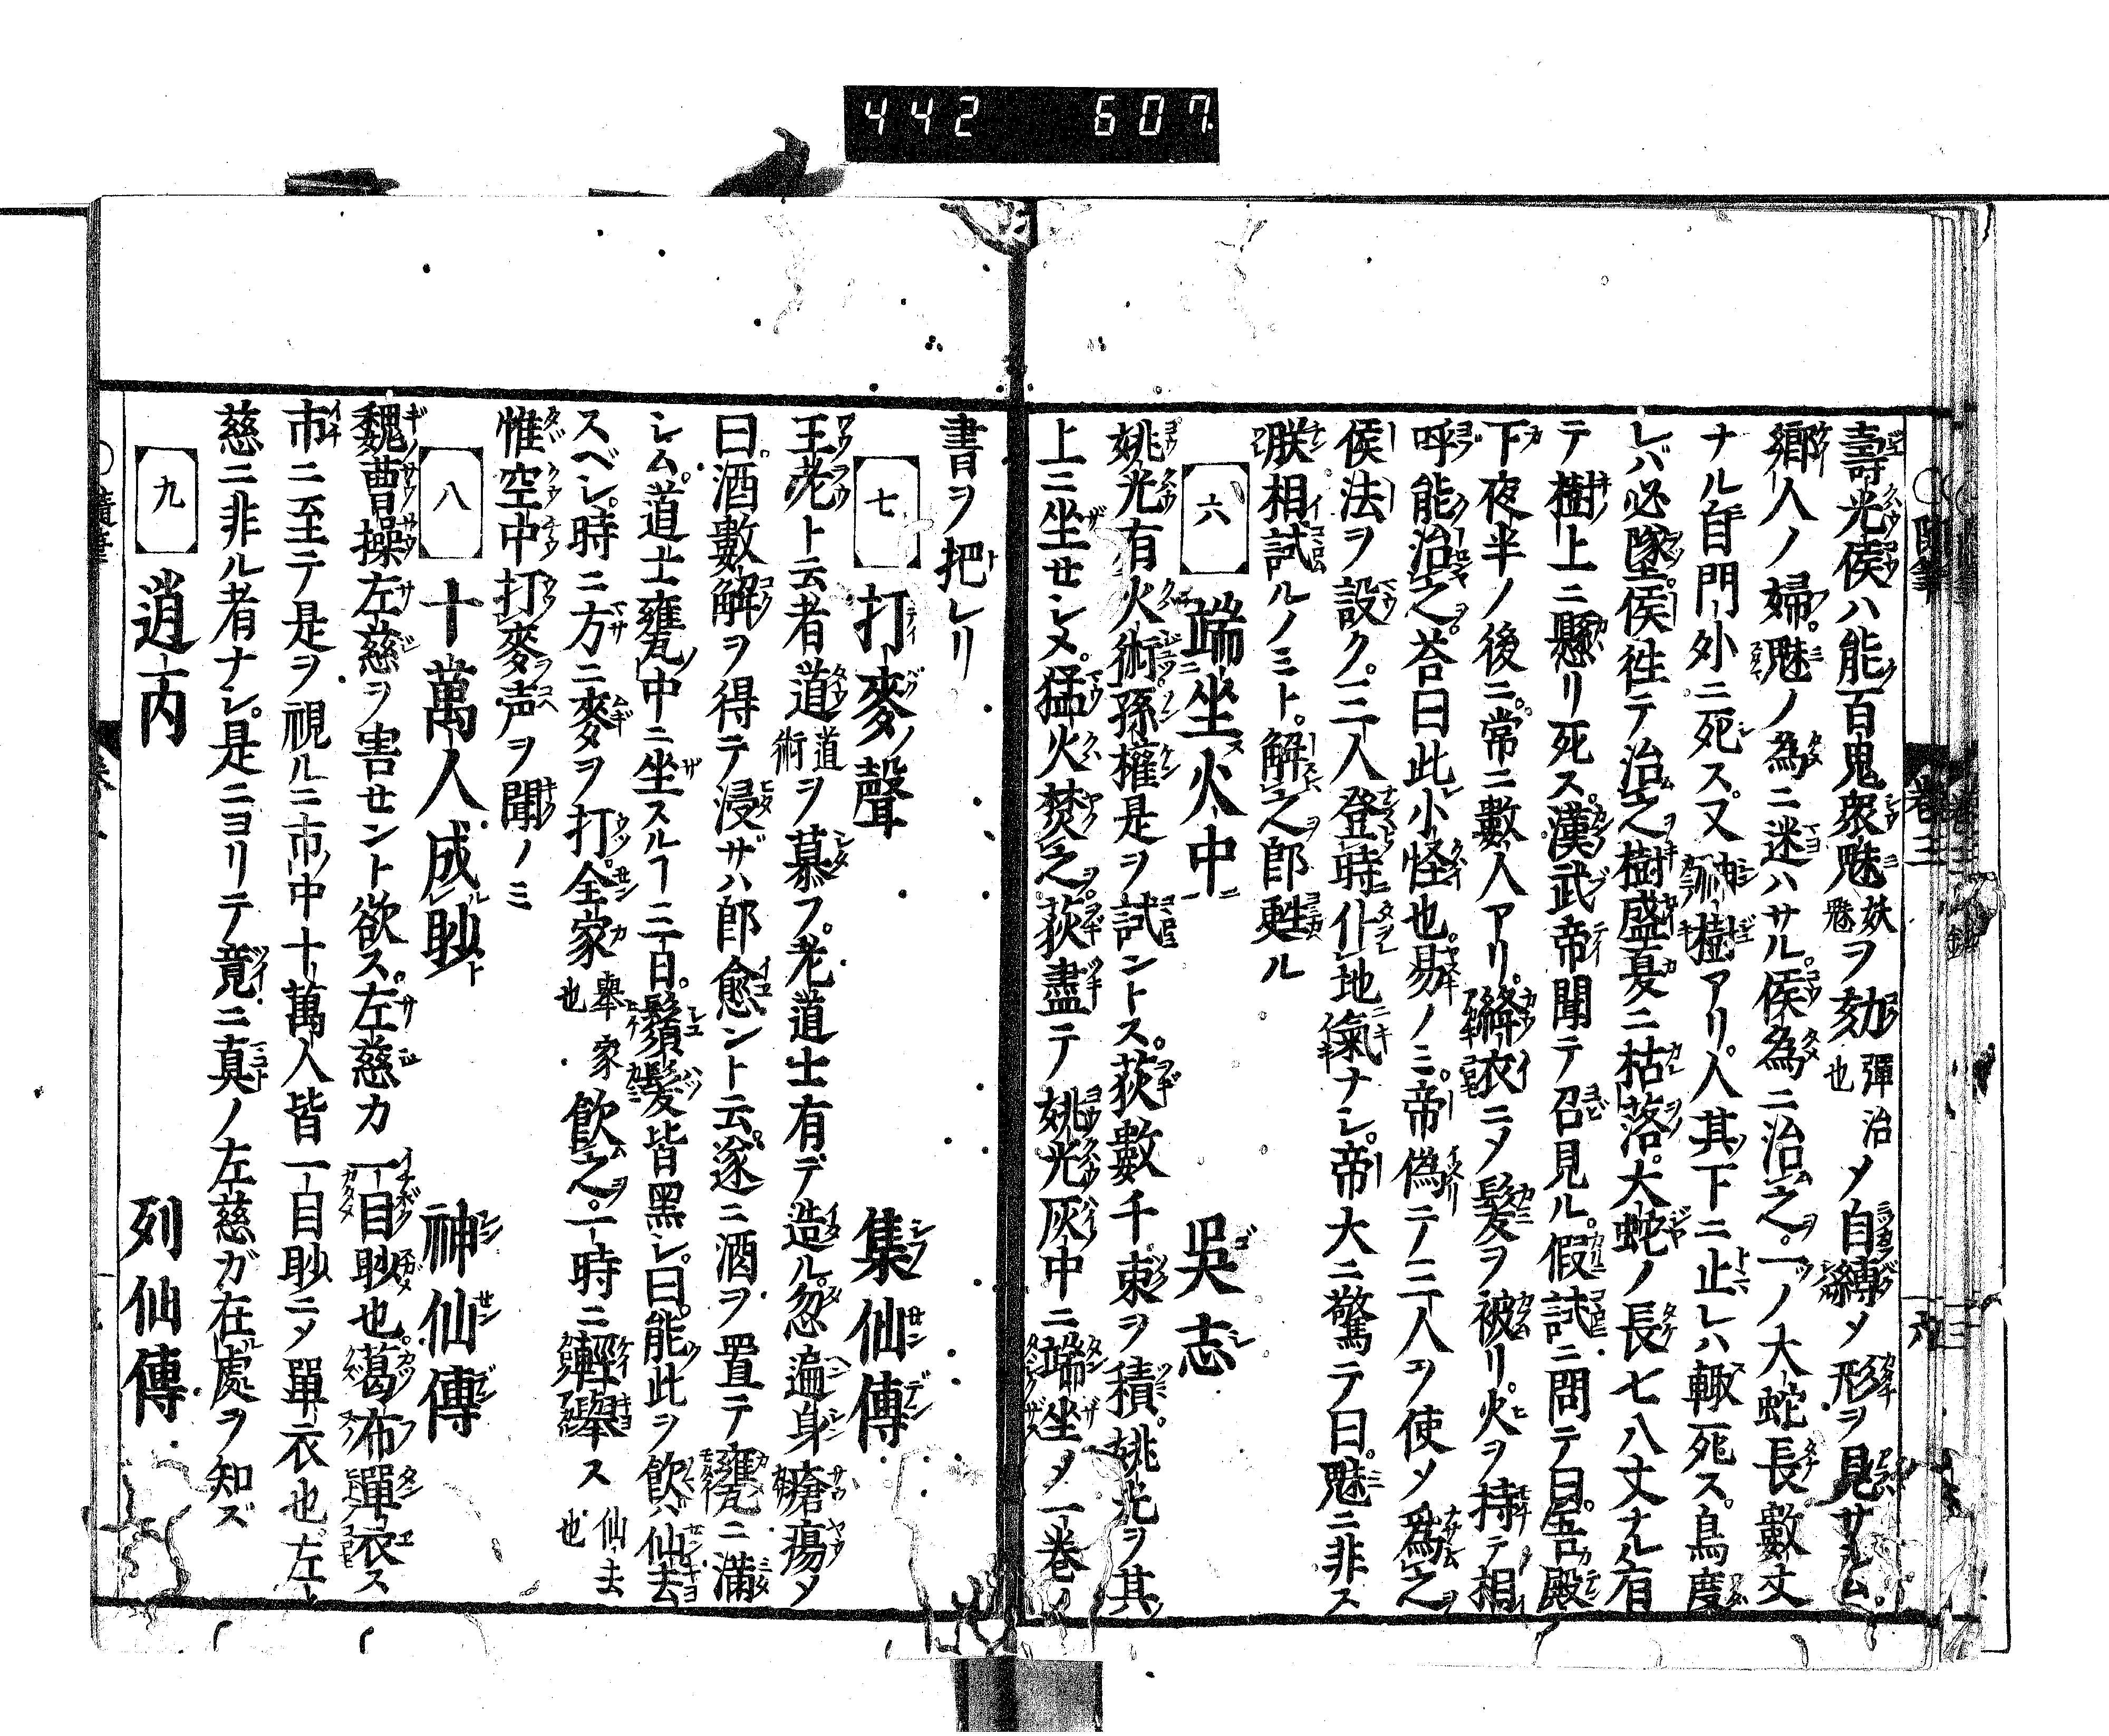 442 607
壽光侯ハ能百鬼衆魅妖魅ヲ劾彈治也メ自縛メ形ヲ見サシム
鄕人ノ婦魅ノ為ニ迷ハサル侯為ニ治之一ノ大蛇長數丈
ナル有門外ニ死ス又神樹アリ人其下ニ止レハ輙死ス鳥度
レバ必墜侯徃テ治之樹盛夏ニ枯落大蛇ノ長七八丈ナル有
テ樹上ニ懸リ死ス漢武帝聞テ召見ル假試ニ問テ曰吾殿
下夜半ノ後ニ常ニ數人アリ絳衣ニメ髮ヲ被リ火ヲ持テ相
呼能治之荅曰此小怪也易ノミ帝偽テ三人ヲ使メ爲之
侯法ヲ設ク三人登時仆地氣ナシ帝大ニ驚テ曰魅ニ非ス
朕相試ルノミト解之即甦ル
六 端坐火中 吳志
姚光有火術孫權是ヲ試ントス荻數千束ヲ積姚光ヲ其
上ニ坐セシメ猛火焚之荻盡テ姚光灰中ニ端坐メ一巻ノ
書ヲ把レリ
七 打麥ノ聲 集仙傳
王老ト云者道道術ヲ慕フ老道士有デ造ル忽遍身瘡瘍メ
曰酒數解ヲ得テ浸ザハ即愈ント云遂ニ酒ヲ置テ甕ニ滿
シム道士甕中ニ坐スルヿ三日鬚髮皆黑シ曰能此ヲ飮バ仙去
スベシ時ニ方ニ麥ヲ打全家擧家也飮之一時ニ輕擧ス仙去也
惟空中打麥声ヲ聞ノミ
八 十萬人成眇 神仙傳
魏曹操左慈ヲ害セント欲ス左慈カ一目眇也葛布單衣ス
市ニ至テ是ヲ視ルニ市ノ中十萬人皆一目眇ニメ單衣也左
慈ニ非ル者ナシ是ニヨリテ竟ニ真ノ左慈ガ在處ヲ知ズ
九 逍丙 列仙傳